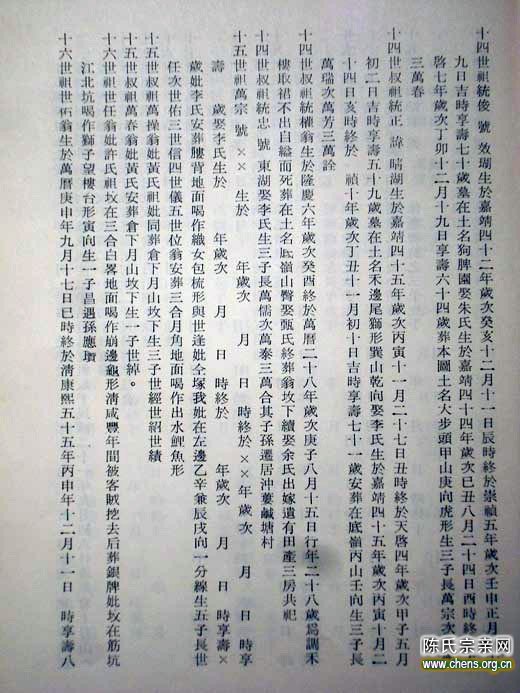 十四世祖統俊 號 效瑚生於嘉靖四十二年歲次癸亥十二月十一日辰時終於崇禎五年歲次壬申正月
九日吉時享壽七十歲墓在土名狗脾園娶朱氏生於嘉靖四十四年歲次己丑八月二十四日酉時終
啓七年歲次丁卯十二月十九日享壽六十四歲葬本圖土名大步頭甲山庚向虎形生三子長萬宗次
三萬春
十四世叔祖統正 諱 晴湖生於嘉靖四十五年歲次丙寅十一月二十七日丑時終於天啓四年歲次甲子五月
初二日吉時享壽五十九歲墓在土名禾邊尾獅形巽山乾向娶李氏生於嘉靖四十五年歲次丙寅十月二
十四日亥時終於 禎十年歲次丁丑十一月初十日吉時享壽七十一歲安葬在底嶺丙山壬向生三子長
萬瑞次萬芳三萬詮
十四世叔祖統權翁生於隆慶六年歲次癸酉終於萬曆二十八年歲次庚子八月十五日行年二十八歲爲調禾
樓取裙不出自縊而死葬在土名底嶺山臀娶甄氏終葬翁坟下續娶余氏出嫁遺有田產三房共祀
十四世叔祖統忠 號 東湖娶李氏生三子長萬儒次萬泰三萬合其子孫遷居沖蔞鹹塘村
十五世祖萬宗 號 ×× 生於 年歲次 月 日 時終於××年歲次 月 日 時享
壽 歲娶李氏生於 年歲次 月 日 時終於 年歲次 月 日 時享壽×
歲妣李氏安葬腰背地面喝作織女包梳形與世逢妣仝塚我妣在左邊乙辛兼辰戌向一分線生五子長世
任次世佑三世信四世儀五世位翁安葬三合月角地面喝作出水鯉魚形
十五世叔祖萬操翁妣黃氏祖妣同葬倉下月山坟下生三子世經世紹世績
十五世叔祖萬春翁妣黃氏安葬倉下月山坟下生一子世綽。
十六世祖世任翁妣許氏祖坟在三合白畧地面喝作崩邊龜形清咸豐年間被客賊挖去后葬銀牌妣坟在筋坑
江北坑喝作獅子望樓台形寅向生一子昌遇孫應瓚
十六世祖世佑翁生於萬曆庚申年九月十七日巳時終於清康熙五十五年丙申年十二月十一日 時享壽八
陈氏宗亲网
www.chens.org.cn